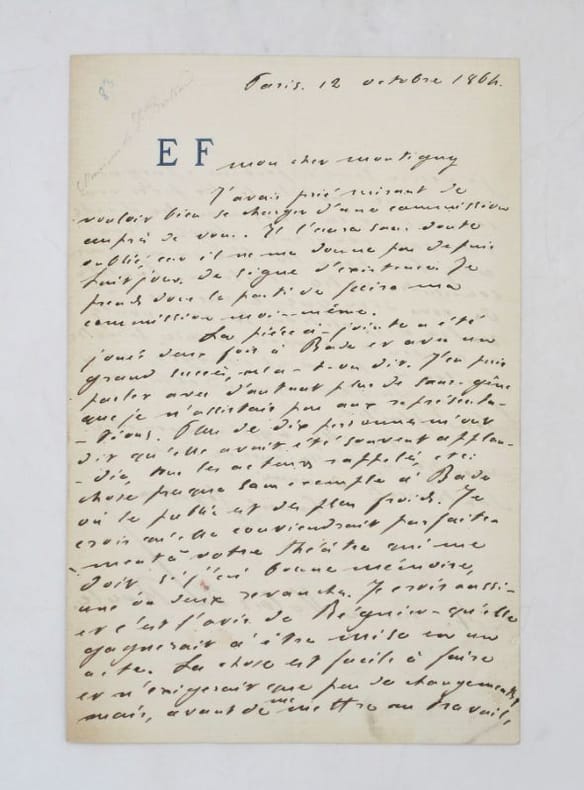 83
Paris. 12 octobre 1864.
E F
mon cher montigny
J'avais prié de
vouloir bien se charger d'une commission
auprès de vous. Il l'aura sans doute
oublié, car il ne m'a donné pas depuis
huit jours de signe d'existence. Je
prends donc le parti de faire ma
commission moi-même.
La pièce ci-jointe a été
jouée deux fois à Bade et avec un
grand succès, m'a-t-on dit. J'en puis
parler avec d'autant plus de sans-gêne
que je n'assistais pas aux représenta-
-tions. Plus de dix personnes m'ont
dit qu'elle avait été souvent applau-
-die, que les acteurs rappelés, etc:
chose presque sans exemple à Bade
où le public est des plus froids. Je
crois qu'elle conviendrait parfaite-
-ment à votre théâtre qui me
doit, si j'ai bonne mémoire,
une ou deux revanches. Je crois aussi-
et c'est l'avis de Régnier-qu'elle
gagnerait à être mise en un
acte. La chose est facile à faire
et n'exigerait que peu de changements,
mais, avant de me mettre au travail,